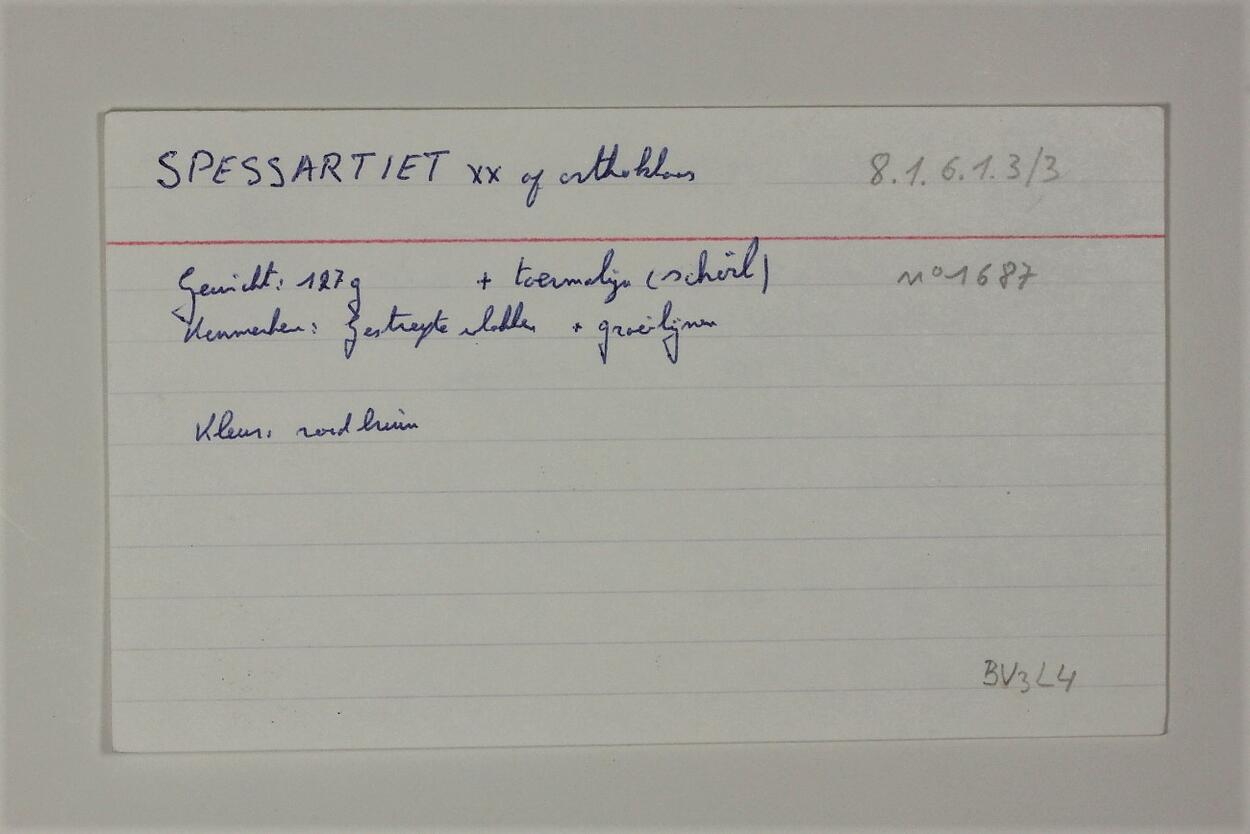 SPESSARTIET xx op orthoklaas 8.1.6.1.3/3
Gewicht: 127g + toermalijn (schörl) n° 1687
Kenmerken: Gestreepte vlakken + groeilijnen
Kleur: roodbruin
BV3L4